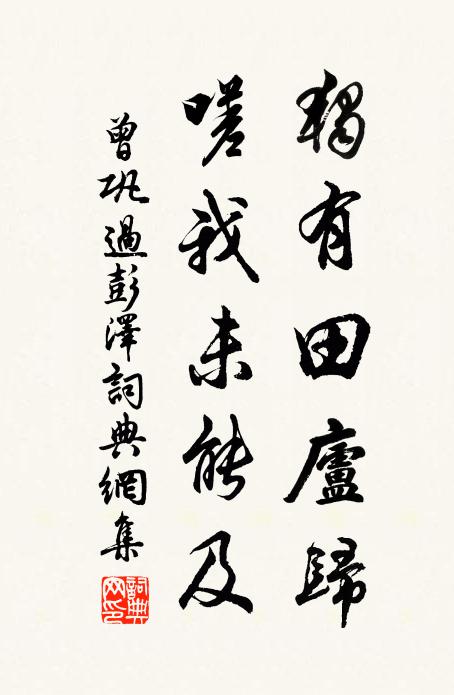 獨有田廬歸
嗟我未能及
曾巩過彭澤詞典網集
詞典網印